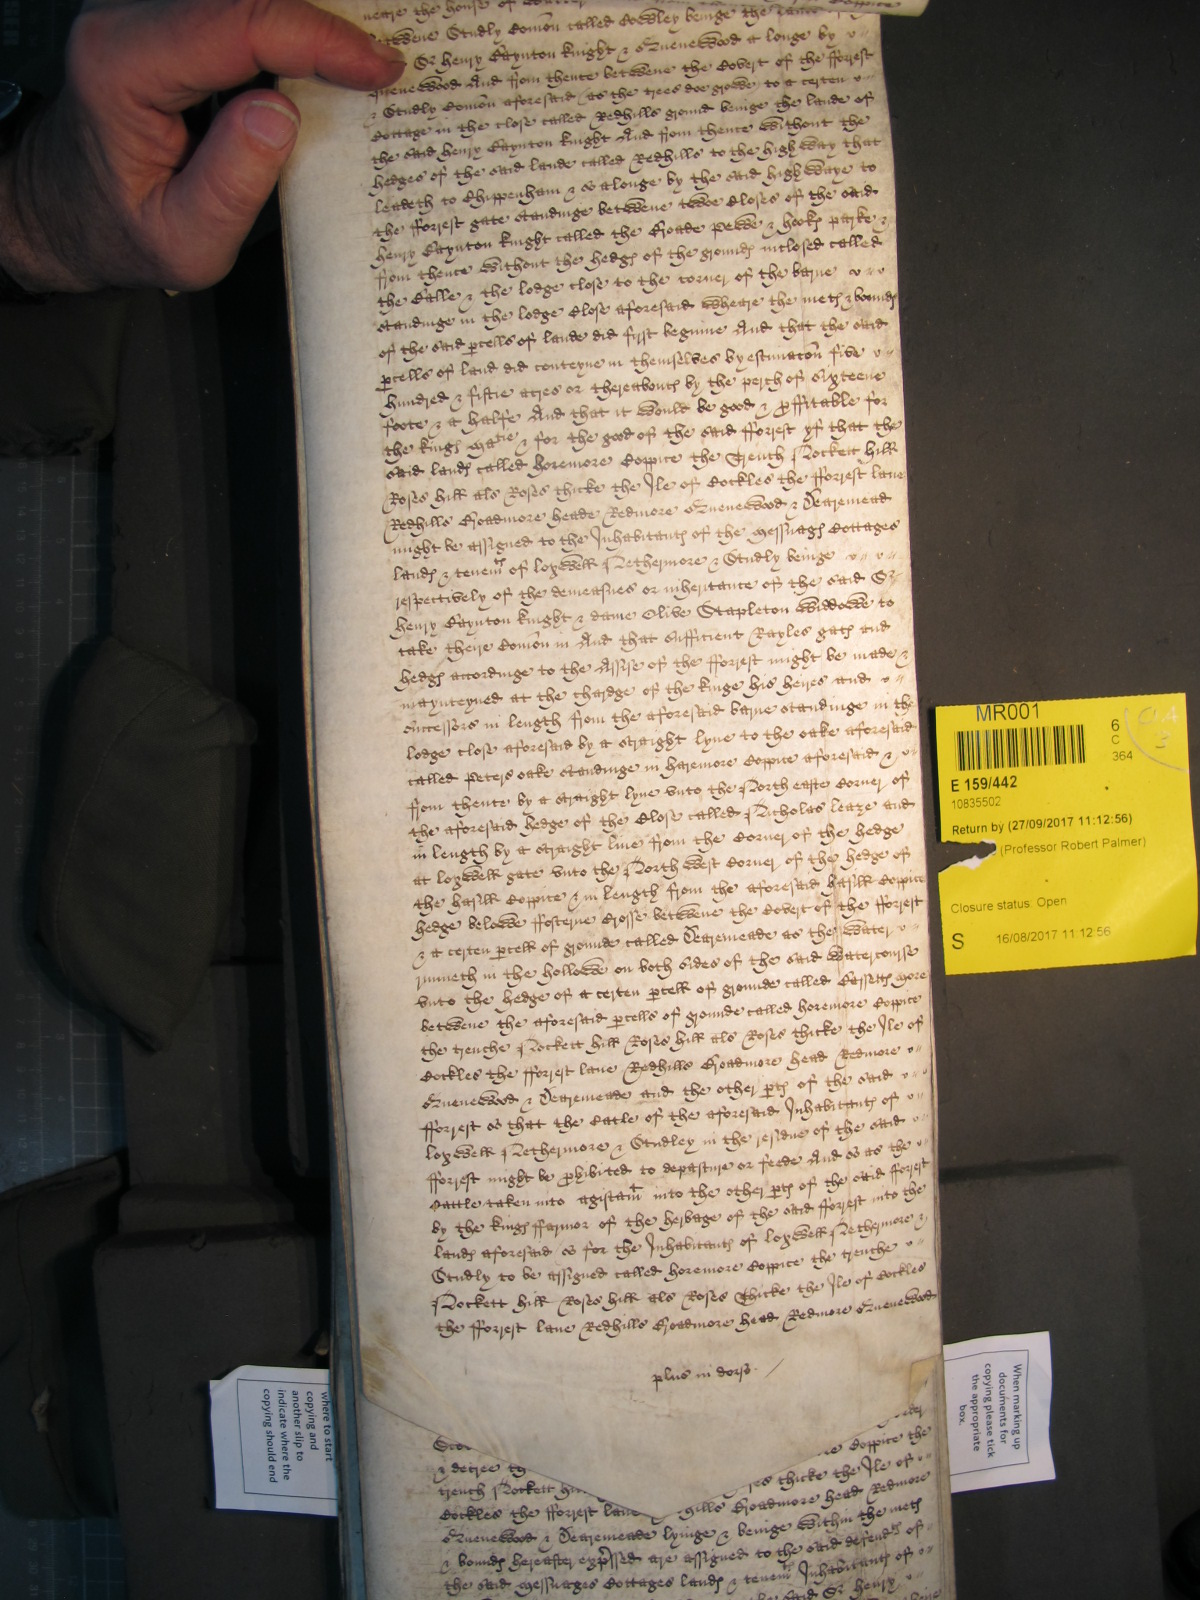 neare the house of
betweene Studly Comon called Cowdley beinge the lande
Sr Henry Baynton knight & Queenewood a longe by
Queenewood And from thence betweene the Covert of the fforrest
& Studly Comon aforesaid as the trees doe growe to a certen
Cottage in the close called Redhills ground beinge the lande of
the said Henry Baynton knight And from thence without the
hedges of the said lande called Redhills to the high way that
leadeth to Chippenham & so alonge by the said high waye to
the fforrest gate standinge betweene twoe Closes of the said
Henry Baynton knight called the Roade & hooks parke &
from thence without the hedgs of the grounds inclosed called
the Calle & the lodge close to the corner of the barne
standinge in the lodge Close aforesaid wheare the mets & bounds
of the said pcells of lande did first beginne And that the said
pcells of land did conteyne in themselves by estimacon five
hundred & fiftie acres or thereabouts by the perch of sixteene
foote & a halfe And that it would be good & proffitable for
the kings Matie & for the good of the said fforrest yf that the
said lands called horemore Coppice the Trench Nockett hill
Roses hill als Roses thicke the Ile of Cockles the fforrest lane
Redhills Roadmore heade Redmore Queenewood & Dearemead
might be assigned to the Inhabitants of the Messuags Cottages
lands & tenemts of loxwell Nethermore & Studly beinge
respectively of the demeasnes or inheritance of the said Sr
Henry Baynton knight & dame Olive Stapleton widdowe to
take theire Comon in And that sufficient Rayles gats and
hedgs accordinge to the Assise of the fforrest might be made &
maynteyned at the chardge of the kinge his heires and
successors in length from the aforesaid barne standinge in the
lodge close aforesaid by a straight lyne to the oake aforesaid
called Peters oake standinge in haremore Coppice aforesaid &
from thence by a straight lyne unto the North easte Corner of
the aforesaid hedge of the Close called Nicholas leaze and
in length by a straight line from the Corner of the hedge
at loxwell gate unto the North west Corner of the hedge of
the hasill Coppice & in length from the aforesaid hasill Coppice
hedge belowe ffosterne Crosse betweene the Covert of the fforrest
& a certen pcell of grounde called Dearemeade as the water
runneth in the hollowe on both sides of the said watercourse
unto the hedge of a certen pcell of grounde called more
betweene the aforesaid pcells of grounde called horemore Coppice
the trenche Nockett hill Roses hill als Roses thicke the Ile of
Cockles the fforrest lane Redhills Roadmore head Redmore
Queenewood & Dearemeade and the other pts of the said
fforrest so that the Catle of the aforesaid Inhabitants of
loxwell Nethermore & Studley in the residue of the said
fforrest might be phibited to depasture or feede And so as the
Cattle taken into agistamt into the other pts of the said fforrest
by the kings ffarmor of the herbage of the said fforrest into the
lands aforesaid so for the Inhabitants of loxwell Nethermore &
Studly to be assigned called horemore Coppice the trenche
Nockett hill Roses hill als Roses Thicke the Ile of Cockles
the fforrest lane Redhills Roadmore head Redmore Queenewood
plus in dorso
Coppice the
& decree
trench Nockett thicke the Ile of
Cockles the fforrest lane Roadmore head Redmore
Queenewood & Dearemeade lyinge & beinge within the mets
& bounds hereafter expressed are assigned to the said defendts of
the said Messuages Cottages lands & tenemts Inhabitants of
said Sr Henry
MR001
6
C
364
E 159/442
10835502
Return by (27/09/2017 11:12:56)
(Professor Robert Palmer)
Closure status: Open
S 16/08/2017 11:12:56
where to start
copying and
another slip to
indicate where the
copying should end
When marking up
documents for
copying please tick
the appropriate
box.